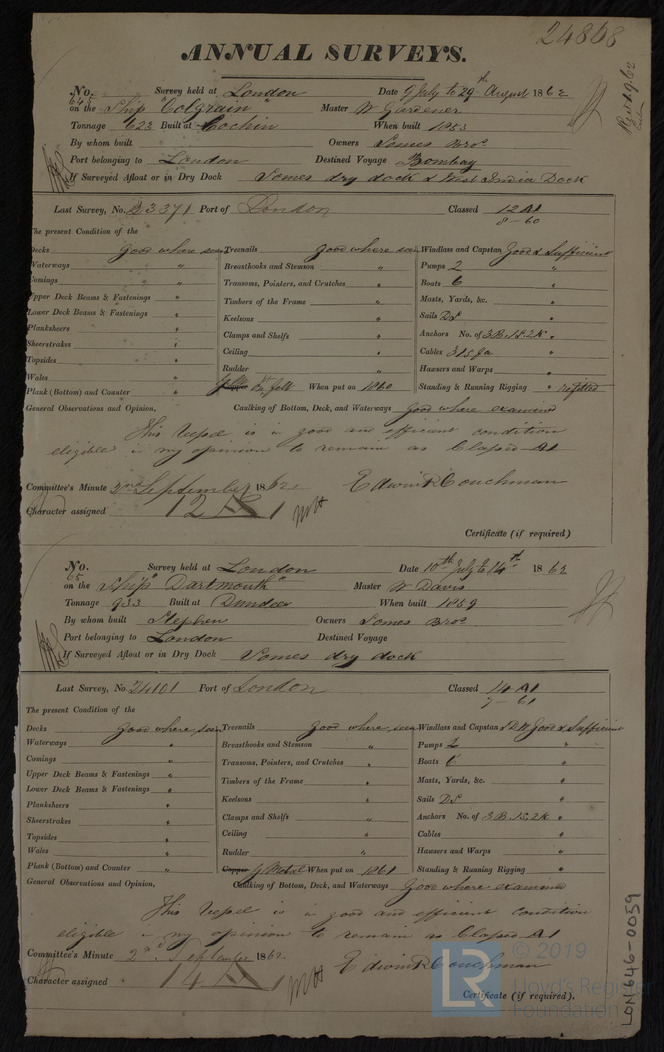 24868
ANNUAL SURVEYS.
No. 645 Survey held at London Date 9 July to 29th August 1862
on the Ship "Colgrain" Master W Gardener
Tonnage 623 Built at Cochin When built 1853
By whom built Owners Somes Bros
Port belonging to London Destined Voyage Bombay
If Surveyed Afloat or in Dry Dock Somes dry dock & West India Dock
Last Survey, No. 23371 Port of London Classed 12 A1
8-60
The present Condition of the
Decks good where seen Treenails good where seen Windlass and Capstan Good & Sufficient
Waterways " Breasthooks and Stemson " Pumps 2 "
Comings " Transoms, Pointers, and Crutches " Boats 6 "
Upper Deck Beams & Fastenings " Timbers of the Frame " Masts, Yards, &c. "
Lower Deck Beams & Fastenings " Keelsons " Sails DS "
Planksheers " Clamps and Shelfs " Anchors No. of 3B.1S.2K "
Sheerstrakes " Ceiling " Cables "
Topsides " Rudder " Hawsers and Warps "
Wales "
Plank (Bottom) and Counter " When put on 1860 Standing & Running Rigging refitted
General Observations and Opinion, Caulking of Bottom, Deck, and Waterways Good where examined
This Vessel is in good and efficient condition
eligible in my opinion to remain as Classed A1
Committee's Minute 2nd September 1862 Edwin R Couchman
Character assigned 12 A1
Certificate (if required)
No. 65 Survey held at London Date 10th July to 14th 1862
on the Ship "Dartmouth" Master W Davis
Tonnage 933 Built at Dundee When built 1859
By whom built Stephen Owners Somes Bros
Port belonging to London Destined Voyage
If Surveyed Afloat or in Dry Dock Somes dry dock
Last Survey, No 24101 Port of London Classed 14 A1
7-61
The present Condition of the
Decks good where seen Treenails good where seen Windlass and Capstan Good & Sufficient
Waterways " Breasthooks and Stemson " Pumps 2 "
Comings " Transoms, Pointers, and Crutches " Boats 6 "
Upper Deck Beams & Fastenings " Timbers of the Frame " Masts, Yards, &c. "
Lower Deck Beams & Fastenings " Keelsons " Sails DS "
Planksheers " Clamps and Shelfs " Anchors No. of 3B.1S.2K "
Sheerstrakes " Ceiling " Cables "
Topsides " Rudder " Hawsers and Warps "
Wales "
Plank (Bottom) and Counter " Copper Y Metal When put on 1861 Standing & Running Rigging "
General Observations and Opinion, Caulking of Bottom, Deck, and Waterways Good where examined
This Vessel is in good and efficient condition
eligible in my opinion to remain as Classed A1
Committee's Minute 2nd September 1862 Edwin R Couchman
Character assigned 14 A1
Certificate (if required).
LON646-0059
© 2019
LR Lloyd's Register
Foundation